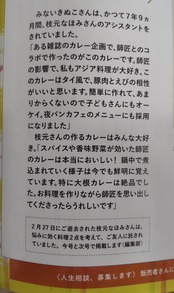 みないきぬこさんは、かつて7年9カ
月間、枝元なほみさんのアシスタント
をされていました。
「ある雑誌のカレー企画で、師匠とのコ
ラボで作ったのがこのカレーです。師匠
の影響で、私もアジア料理が大好き。こ
のカレーはタイ風で、豚肉とえびの相性
がいいと思います。簡単に作れて、あま
り辛くないので子どもさんにもオー
ケイ。夜パンカフェのメニューにも採用
になりました」
枝元さんの作るカレーはみんな大好
き。「スパイスや香味野菜が効いた師匠
のカレーは本当においしい! 鍋中で煮
込まれていく様子は今でも鮮明に覚え
ています。特に大根カレーは絶品でし
た。お料理を作りながら師匠を思い出し
てくださったらうれしいです」
2月27日にご逝去された枝元なほみさんは、
悩みに効く料理2点を考えて、ご友人に託され
ていました。今号と次号で掲載します(編集部)
〈人生相談、募集します〉 販売者さんに